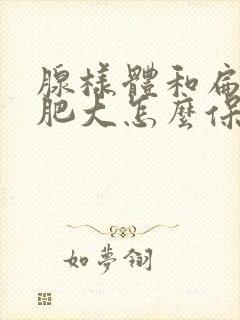 腺樣體和扁
肥大怎麼保
如夢翎